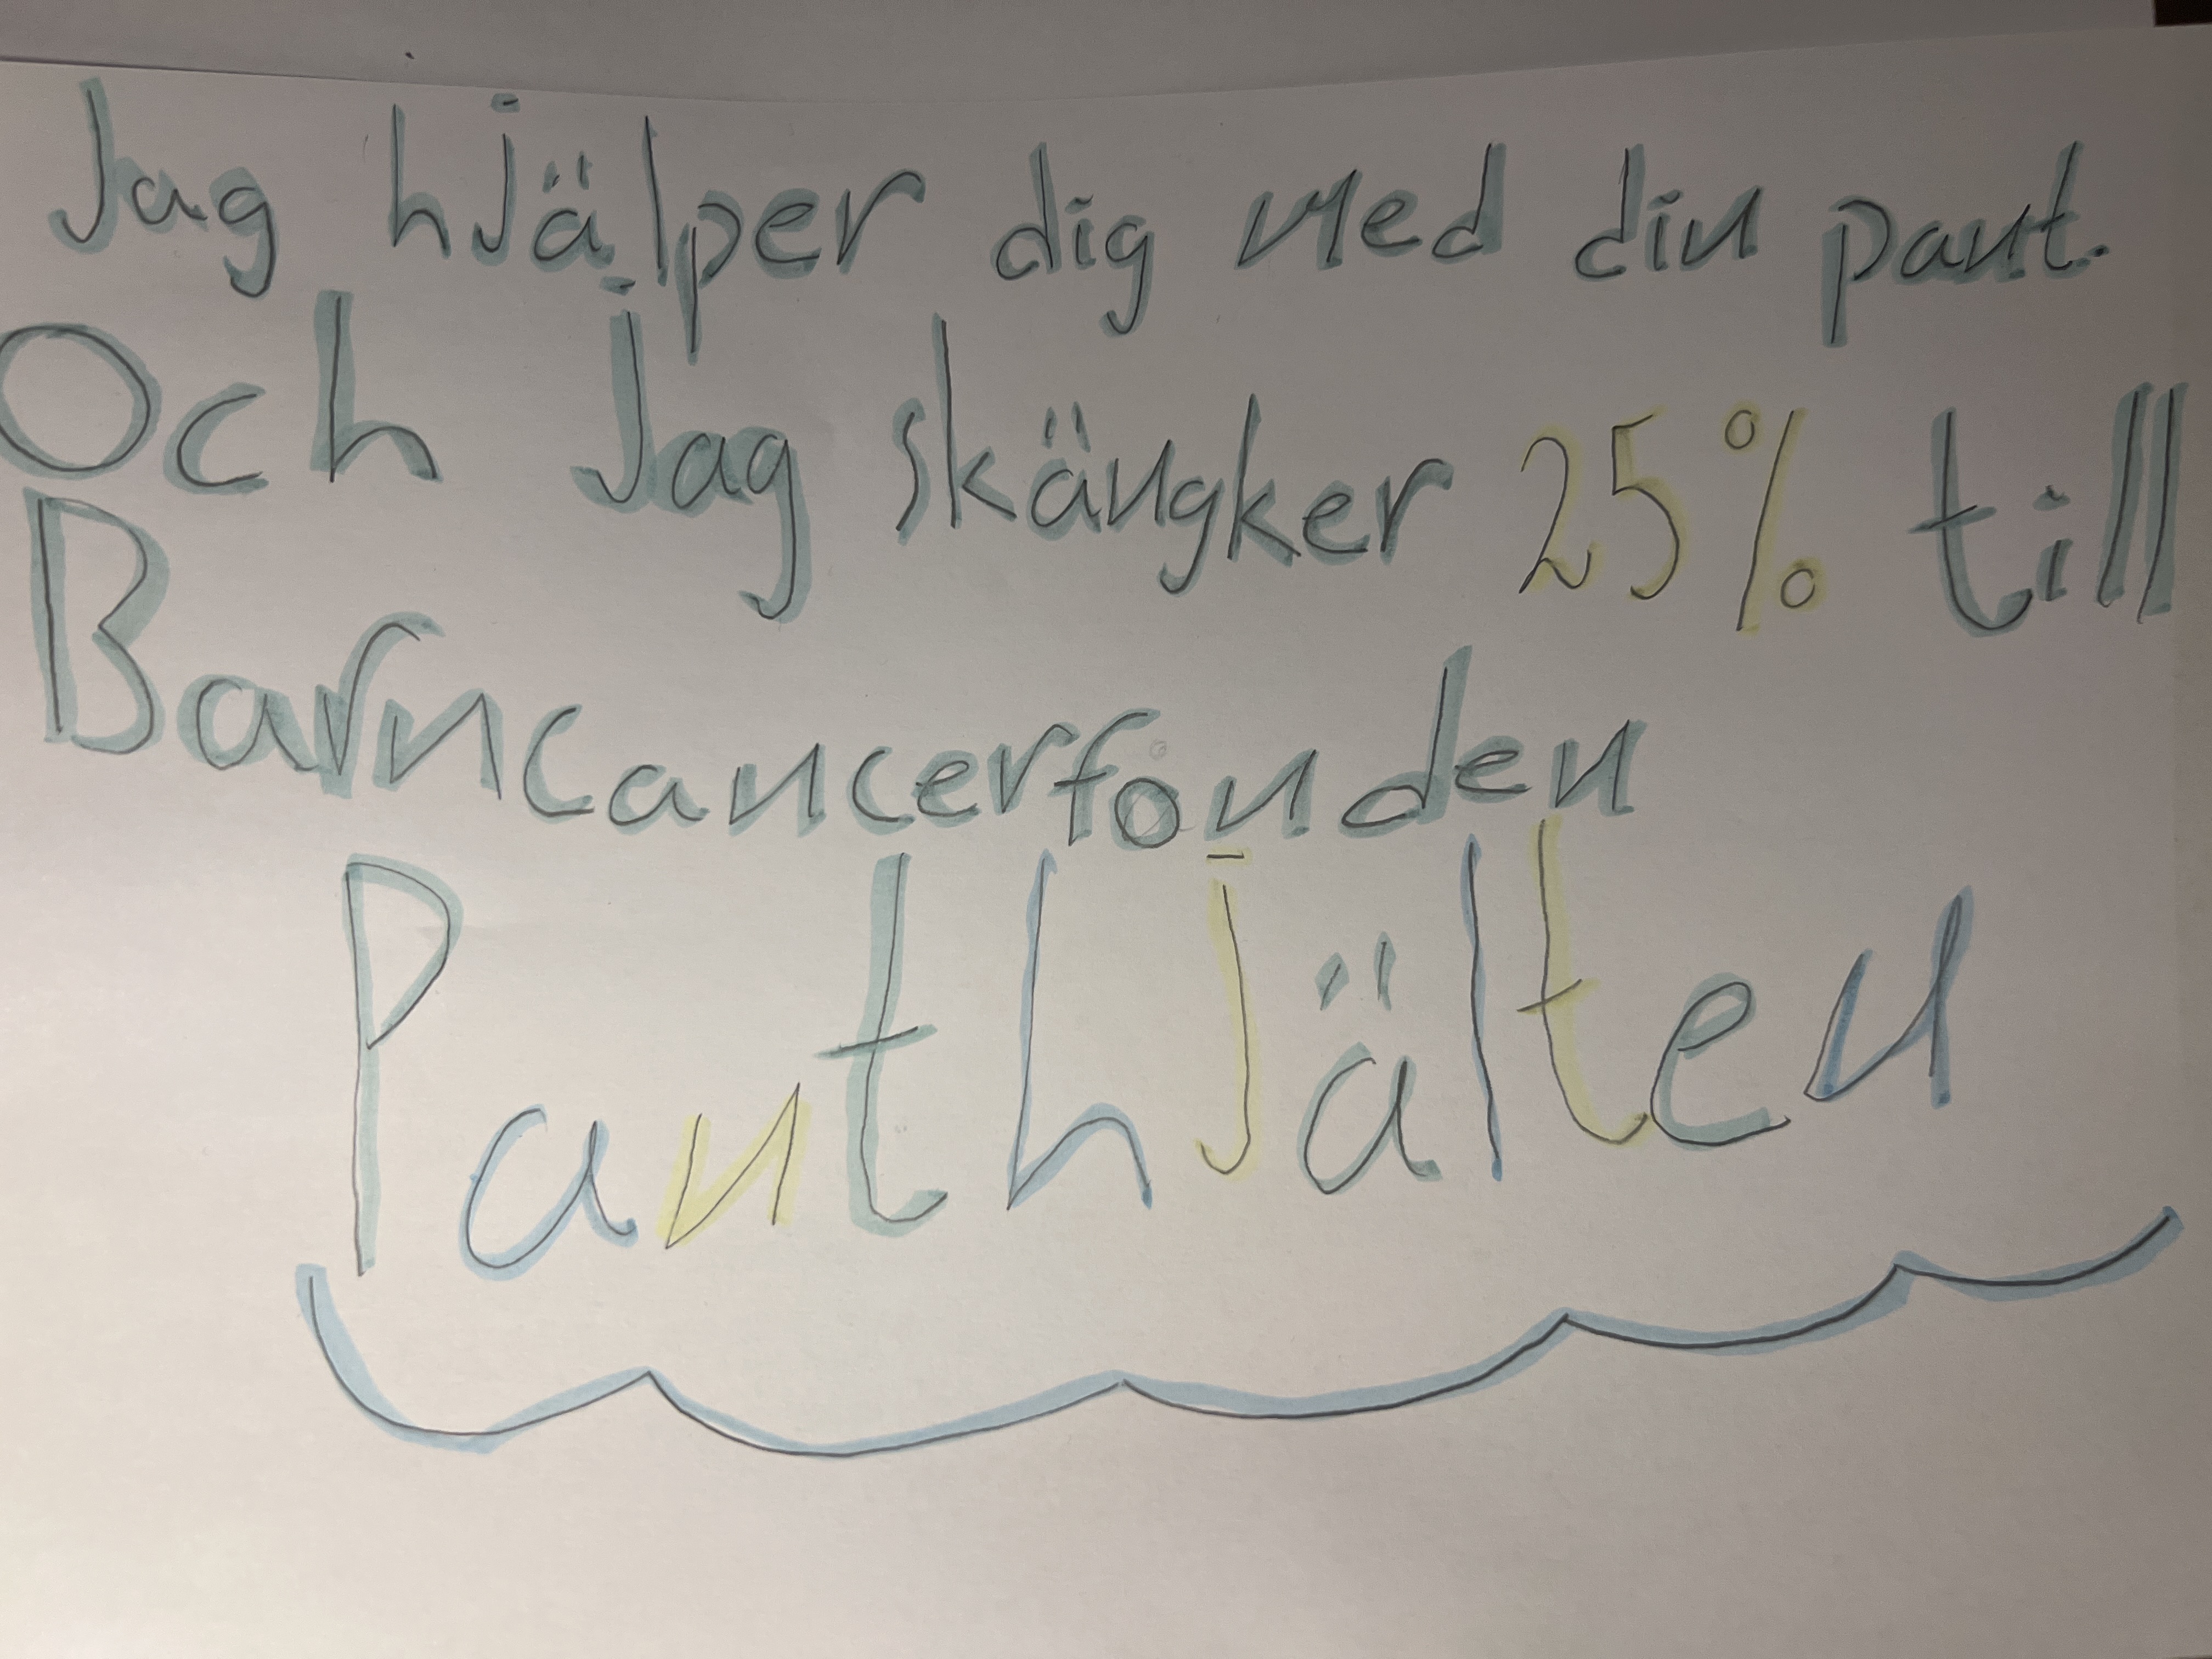 Jag hjälper dig med din pant.
Och jag skängker 25% till
Barncancerfonden
Panthjälten